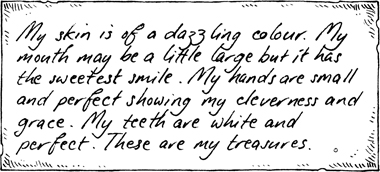 My skin is of a dazzling colour. My
mouth may be a little large but it has
the sweetest smile. My hands are small
and perfect showing my cleverness and
grace. My teeth are white and
perfect. These are my treasures.